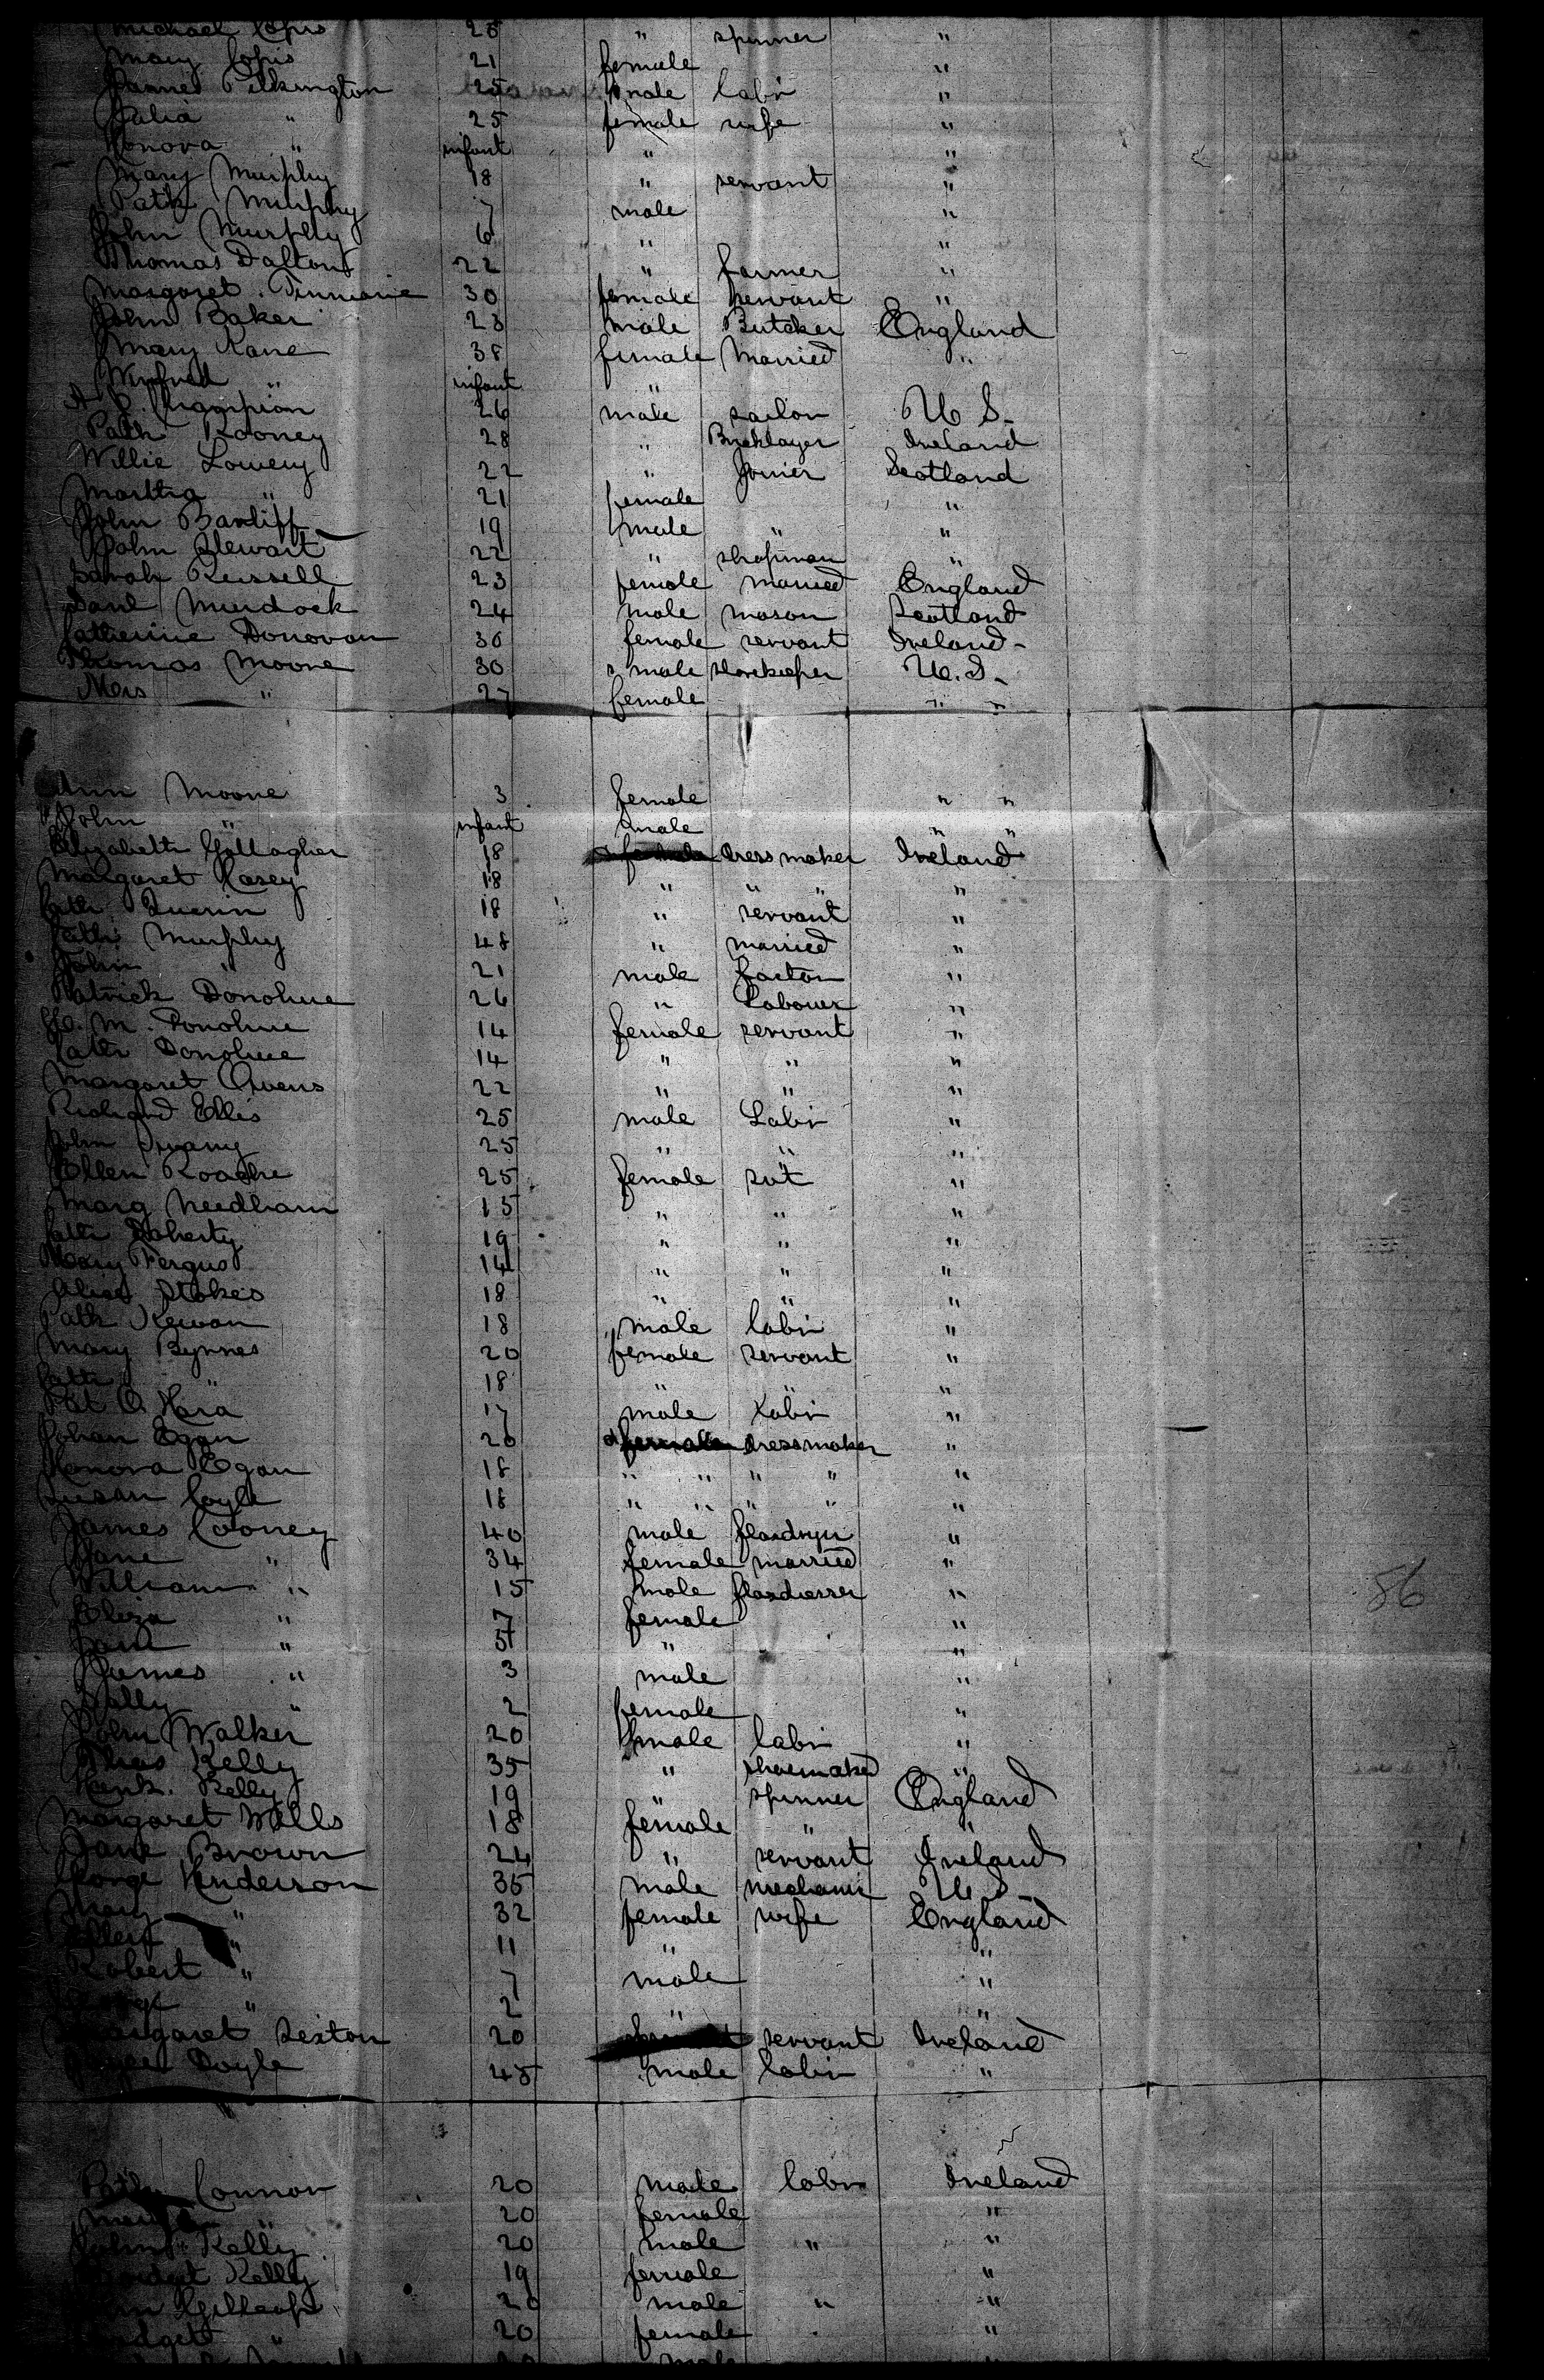 Michael 28 " spinner "
Mary 21 female "
James Pilkington 25 male labr "
Julia " 25 female wife "
Honora " infant " "
Mary Murphy 18 " servant "
Patk Murphy 7 male "
John Murphy 6 " "
Thomas Dalton 22 " farmer "
Margaret 30 female servant "
John Baker 23 male Butcher England
Mary Kane 38 female Married "
Winfred " infant "
26 male sailor U S.
Path Rooney 28 " Bricklayer Ireland
Willie Lowery 22 " Joiner Scotland
Martha " 21 female "
John Bardiff 19 male " "
John Stewart 22 " shopman "
Sarah Russell 23 female married England
Danl Murdock 24 male mason Scotland
Catherine Donovan 30 female servant Ireland
Thomas Moore 30 male storekeeper U.S.
Mrs " 27 female " "
Ann Moore 3 female " "
John " infant male " "
Elizabeth Gallagher 18 female dressmaker Ireland
Margaret Casey 18 " " " "
Cath 18 " servant "
Cath Murphy 48 " married "
John " 21 male "
Patrick Donohue 26 " Labourer "
M. Donohue 14 female servant "
Cath Donohue 14 " " "
Margaret Owens 22 " " "
Richard Ellis 25 male Labr "
John 25 " " "
Ellen Roache 25 female svt "
Marg Needham 15 " " "
Cath Doherty 19 " " "
Mary Fergus 14 " " "
Alice Stokes 18 " " "
Path Kewan 18 male labr "
Mary Byrnes 20 female servant "
Cath " 18 "
Pat O Hara 17 male Labr "
Johan Egan 20 female dressmaker "
Honora Egan 18 " " " " "
Susan Coyle 18 " " " " "
James Cooney 40 male "
Jane " 34 female married "
William " 15 male flaxdresser "
Eliza " 7 female "
Jane " 5 " "
James " 3 male "
Sally " 2 female "
John Walker 20 male labr "
Thos Kelly 35 " shoemaker "
Kelly 19 " spinner England
Margaret Wells 18 female " "
Jane Brown 24 " servant Ireland
George Henderson 35 male mechanic U S
Mary " 32 female wife England
Ellen " 11 " "
Robert " 7 male "
George " 2 " "
Margaret Sexton 20 servant Ireland
Doyle 45 male labr "
86
Path Connor 20 male labr Ireland
" 20 female "
John Kelly 20 male " "
Bridget Kelly 19 female "
20 male " "
Bridget " 20 female "